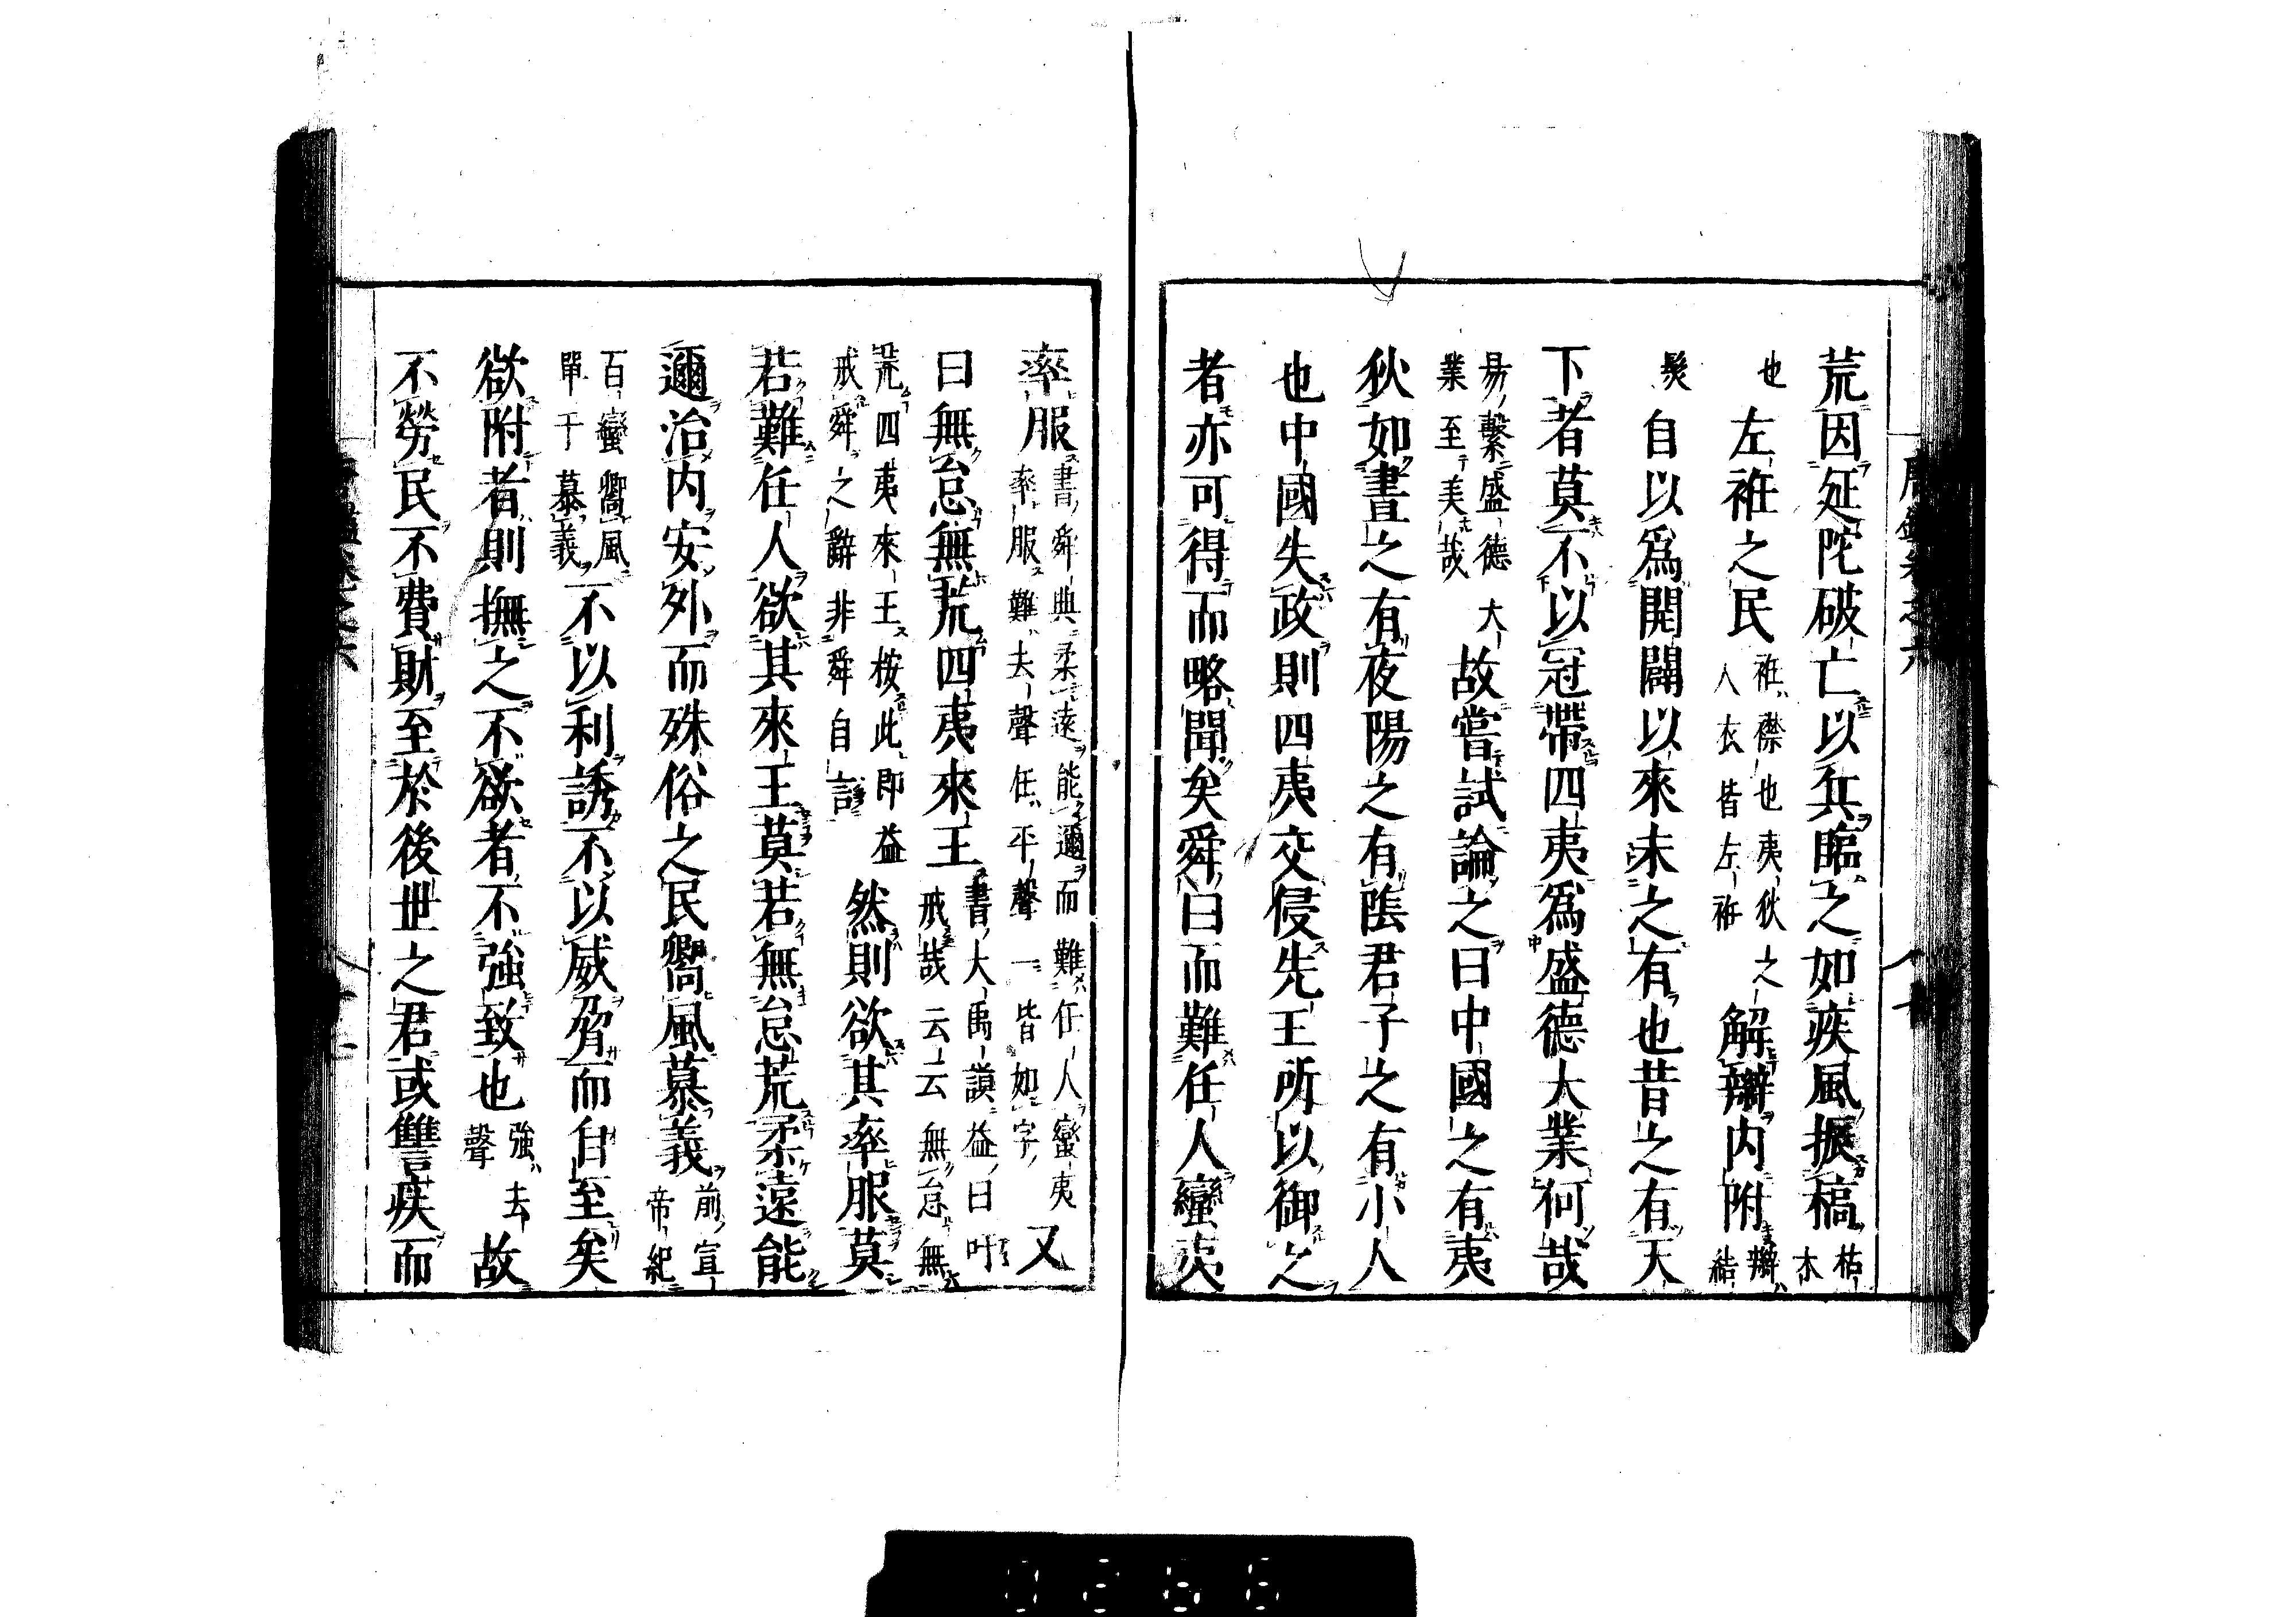 荒因延陀破亡以兵臨之如疾風振槁枯木
也左袵之民袵襟也夷狄之人衣皆左袵解辮内附辮結
髮自以爲開闢以來未之有也昔之有天
下者莫不以冠帶四夷爲盛德大業何哉
易繫盛德大業至美哉故嘗試論之曰中國之有夷
狄如晝之有夜陽之有陰君子之有小人
也中國失政則四夷交侵先王所以御之
者亦可得而略聞矣舜曰而難任人蠻夷
率服書舜典柔遠能邇而難任人蠻夷率服難去聲任平聲一皆如字又
曰無怠無荒四夷來王書大禹謨益曰吁戒哉云云無怠無
荒四夷來王按此即益戒舜之辭非舜自言然則欲其率服莫
若難任人欲其來王莫若無怠荒柔遠能
邇治内安外而殊俗之民嚮風慕義前宣帝紀
百蠻嚮風單于慕義不以利誘不以威脅而自至矣
欲附者則撫之不欲者不強致也強去聲故
不勞民不費財至於後世之君或讐疾而
0266